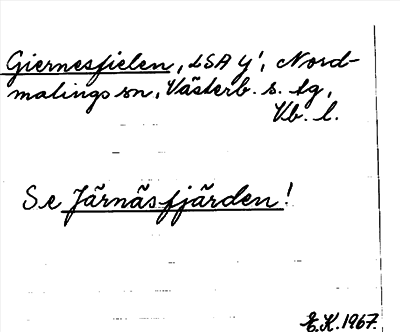 Giernesfielen, LSA y', Nord-
malings sn, Västerb. s. tg,
Vb. l.
Se Järnäsfjärden!
E.K. 1967.